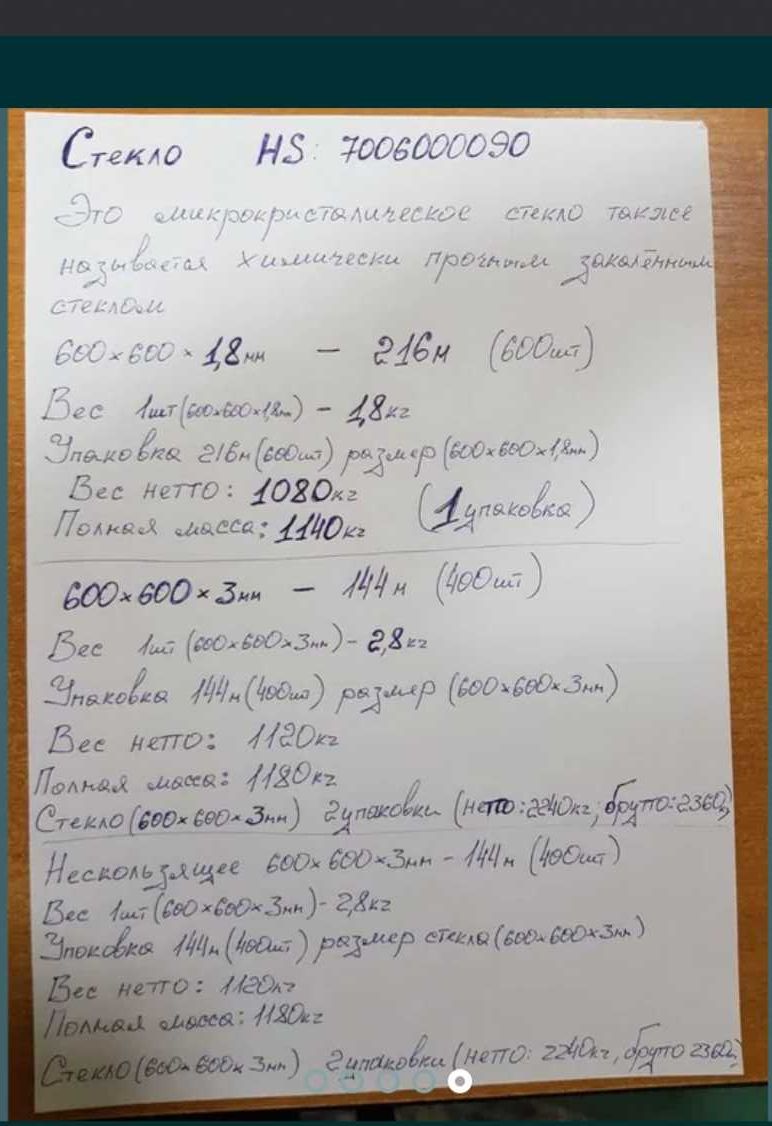 Стекло HS: 7006000090
Это микрокристалическое стекло также
называется химически прочным закалённым
стеклом
600×600×1,8мм – 216м (600шт)
Вес 1шт(600×600×1,8мм) – 1,8кг
Упаковка 216м(600шт) размер(600×600×1,8мм)
Вес нетто: 1080кг
Полная масса: 1140кг (1упаковка)
600×600×3мм – 144м (400шт)
Вес 1шт(600×600×3мм) – 2,8кг
Упаковка 144м(400шт) размер (600×600×3мм)
Вес нетто: 1120кг
Полная масса: 1180кг
Стекло(600×600×3мм) 2упаковки (нетто:2240кг, брутто:2360)
Нескользящее 600×600×3мм – 144м (400шт)
Вес 1шт(600×600×3мм) – 2,8кг
Упоковка 144м(400шт) размер стекла(600×600×3мм)
Вес нетто: 1120кг
Полная масса: 1180кг
Стекло(600×600×3мм) 2упаковки (нетто: 2240кг, брутто 2360)